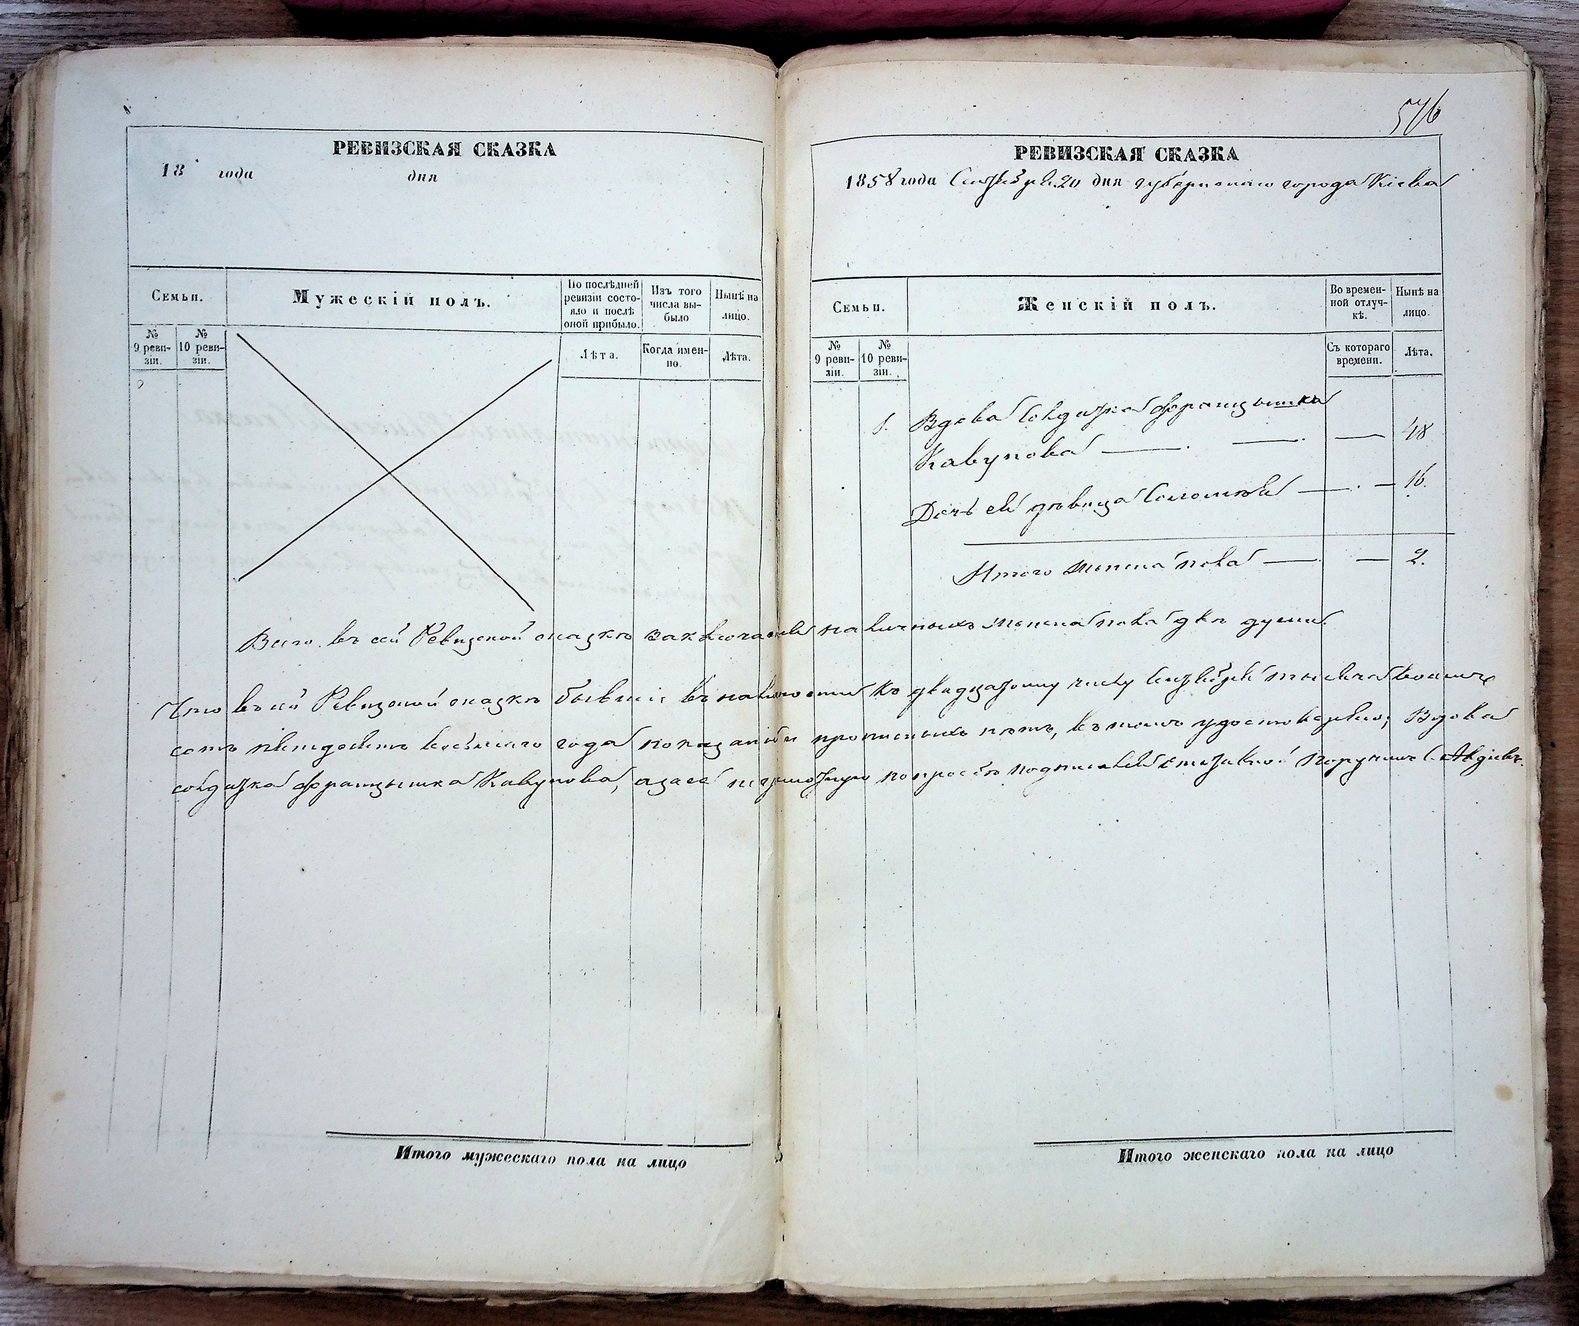 РЕВИЗСКАЯ СКАЗКА
18 года дня
Семьи.
Мужескій полъ.
По послѣдней ревизіи состояло и послѣ оной прибыло.
Изъ того числа выбыло
Нынѣ на лицо.
№ 9 ревизіи.
№ 10 ревизіи.
Лѣта.
Когда именно.
Лѣта.
Итого мужескаго пола на лицо
576
РЕВИЗСКАЯ СКАЗКА
1858 года Сентября 20 дня губернскаго города Кіева
Семьи.
Женскій полъ.
Во временной отлучкѣ.
Нынѣ на лицо.
№ 9 ревизіи.
№ 10 ревизіи.
Съ котораго времени.
Лѣта.
1. Вдова Солдатка Францышка
Кавунова — — — 48
Дочь ея дѣвица Саломея — — 16.
Итого женска пола — — 2.
Всего въ сей Ревизской сказкѣ заключается наличныхъ женска пола двѣ души.
Что въ сей Ревизской сказкѣ бывшіе въ наличности къ двадцатому числу Сентября тысяча восемь
сотъ пятдесятъ восьмаго года показаны и прописныхъ нѣтъ, въ томъ удостовѣряю; Вдова
солдатка Францышка Кавунова, а за ее неграмотную по просьбѣ подписался Отставной Поручикъ Авдіевъ.
Итого женскаго пола на лицо